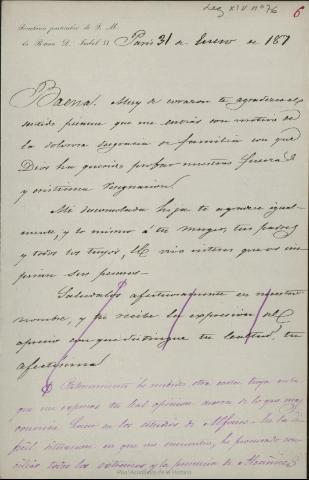 Leg XIV nº 76
6
Secretaría particular de S. M.
la Reina D. Isabel II
Paris 31 de Enero de 187
Baena. Muy de corazon te agradezco el
sentido pésame que me envias con motivo de
la dolorosa desgracia de familia con que
Dios ha querido probar nuestra fuerza
y cristiana resignacion.
Mi desconsolada hija te agradece igual-
mente, y lo mismo á tu mujer, tus padres
y todos los tuyos, el vivo interes que os ins-
piran sus penas.
Saludalos afectuosamente en nuestro
nombre, y tu recibe la expresion del
aprecio con que distingue tu lealtad, tu
afectisima
Ultimamente he recibido otra carta tuya en la
que me expones tu leal opinion acerca de lo que mas
conviene hacer en los estudios de Alfonso. En la di-
ficil situacion en que me encuentro, he procurado con-
ciliar todos los extremos y la presencia de
Real Academia de la Historia